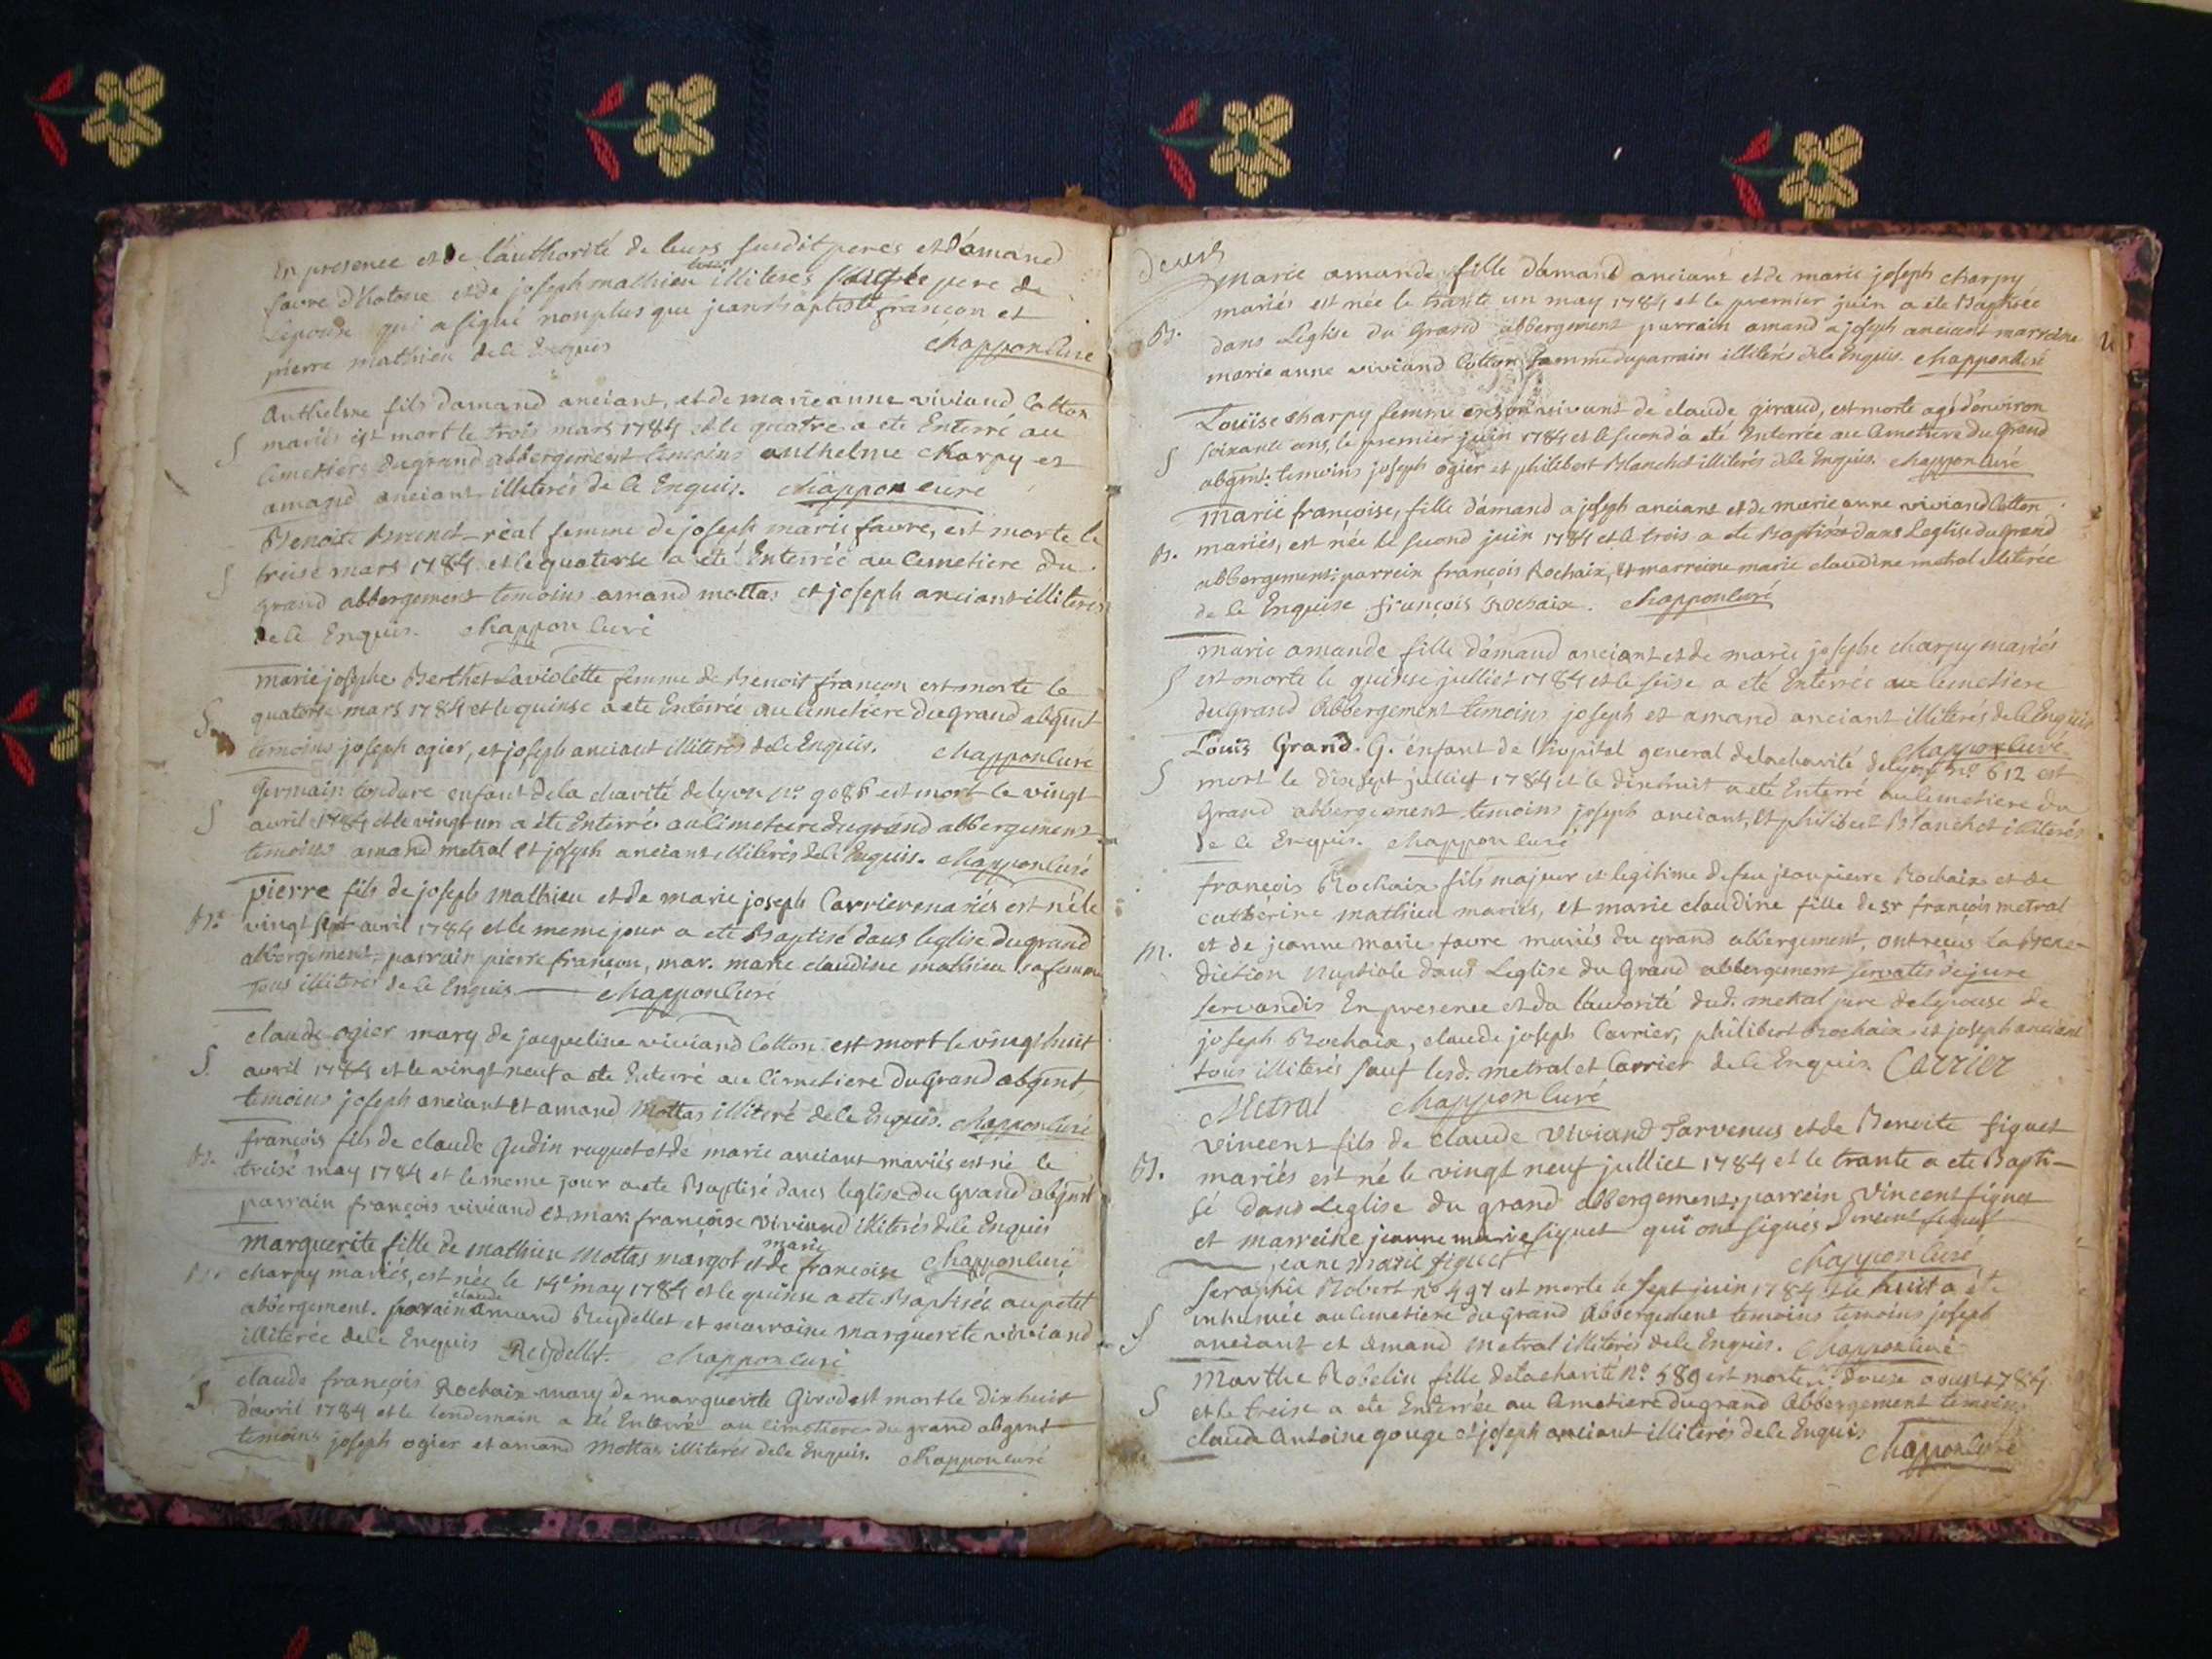 En presence et de l'authorité de leurs susdit peres et d'amand
favre d'hotone et de joseph mathieu tous illiteres sauf le pere de
Lepouse qui a signé non plus que jean baptiste françon et
pierre mathieu de le Enquis chappon curé
Anthelme fils d'amand anciant, et de marie anne viviand Cotton
S mariés est mort le trois mars 1784 et le quatre a ete Enterré au
Cimetiere du grand abbergement temoins anthelme charpy et
amand anciant illiterés de le Enquis. chappon curé
Benoite Brunet-réal femme de joseph marie favre, est morte le
S treise mars 1784 et le quatorse a été Enterrée au Cemetiere du
grand abbergement temoins amand mottas et joseph anciant illiterés
de le Enquis. chappon curé
marie josephe Berthet Laviolette femme de Benoit françon est morte le
S quatorse mars 1784 et le quinse a ete Enterrée au cimetiere du grand abgmt
temoins joseph ogier, et joseph anciant illiterés de le Enquis. chappon curé
Germain Condure enfant de la charité de lyon no. 9086 est mort le vingt
S avril 1784 et le vingt un a été Enterré au cimetiere du grand abbergement
temoins amand metral et joseph anciant illiterés de le Enquis. chappon curé
pierre fils de joseph mathieu et de marie joseph Carrier mariés est né le
B. vingt sept avril 1784 et le meme jour a ete Baptisé dans leglise du grand
abbergement. parrain pierre françon, mar. marie claudine mathieu sa femme
tous illiterés de le Enquis — chappon curé
claude ogier mary de jacqueline viviand Cotton est mort le vingt huit
S. avril 1784 et le vingt neuf a ete Enterré au cimetiere du Grand abgmt,
temoins joseph anciant et amand Mottas illiteré de le Enquis. chappon curé
françois fils de claude Gudin ruguet et de marie anciant mariés est né le
B. treise may 1784 et le meme jour a ete Baptisé dans leglise du Grand abgmt
parrain françois viviand et mar. françoise Viviand illiterés de le Enquis
chappon curé
Marguerite fille de mathieu Mottas margot et de marie françoise
B. charpy mariés, est née le 14e may 1784 et le quinse a ete Baptisée au petit
abbergement. parain claude amand Reydellet et marraine marguerite viviand
illiterée de le Enquis Reydellet. chappon curé
claude françois Rochaix mary de marguerite Girod est mort le dix huit
S d'avril 1784 et le lendemain a été Enterré au cimetiere du grand abgmt
temoins joseph ogier et amand Mottas illiterés de le Enquis. chappon curé
deux
Marie amande fille d'amand anciant et de marie joseph charpy
mariés est née le trante un may 1784 et le premier juin a ete Baptisée
B. dans Leglise du Grand abbergement parrain amand a joseph anciant marraine
marie anne viviand Cotton femme du parrain illiterés de le Enquis. chappon curé
Louise charpy femme en son vivant de claude giraud, est morte agé d'environ
S soixante ans, le premier juin 1784 et le second a été Enterrée au Cimetiere du Grand
abgmt. temoins joseph ogier et philibert Blanchet illiterés de le Enquis. chappon curé
Marie françoise, fille d'amand a joseph anciant et de marie anne viviand Cotton
B. mariés, est née le second juin 1784 et le trois a ete Baptisée dans Leglise du Grand
abbergement. parrein françois Rochaix, et marreine marie claudine metral illiterée
de le Enquise françois Rochaix. chappon curé
Marie amande fille d'amand anciant et de marie josephe charpy mariés
S est morte le quinse julliet 1784 et le seise a eté Enterrée au Cemetiere
du Grand abbergement temoins joseph et amand anciant illiterés de le Enquis
chappon curé
Louis Grand. G. enfant de l'hopital general de la charité de lyon no 612 est
S mort le dix sept julliet 1784 et le dix huit a été Enterré au Cimetiere du
Grand abbergement temoins joseph anciant, et philibert Blanchet illiterés
de le Enquis. chappon curé
françois Rochaix fils majeur et legitime de feu jean pierre Rochaix et de
cathérine mathieu mariés, et marie claudine fille de sr françois metral
et de jeanne marie favre mariés du grand abbergement, ont recus La Bene-
M. diction Nuptiale dans Leglise du Grand abbergement servatis de jure
servandis En presence et de l'autorité dud. metral pere de lepouse de
joseph Rochaix, claude joseph Carrier, philibert Rochaix et joseph anciant
tous illiterés sauf lesd. metral et Carrier de le Enquis. Carrier
Metral chappon curé
Vincent fils de claude Viviand Parvenus et de Benoite figuet
B. mariés est né le vingt neuf julliet 1784 et le trante a ete Bapti-
sé dans Leglise du grand abbergement. parrein Vincent figuet
et marreine jeanne marie figuet qui ont signés Vincent figuet
jeane marie figuet chappon curé
Seraphie Robert no 497 est morte le sept juin 1784 et le huit a été
S inhumée au Cimetiere du Grand Abbergement temoins temoins joseph
anciant et amand Metral illiterés de le Enquis. chappon curé
Marthe Robelin fille de la charité No. 589 est morte le douse aoust 1784
S et le treise a ete Enterrée au Cimetiere du grand Abbergement temoins
claude Antoine gouge et joseph anciant illiterés de le Enquis
chappon curé